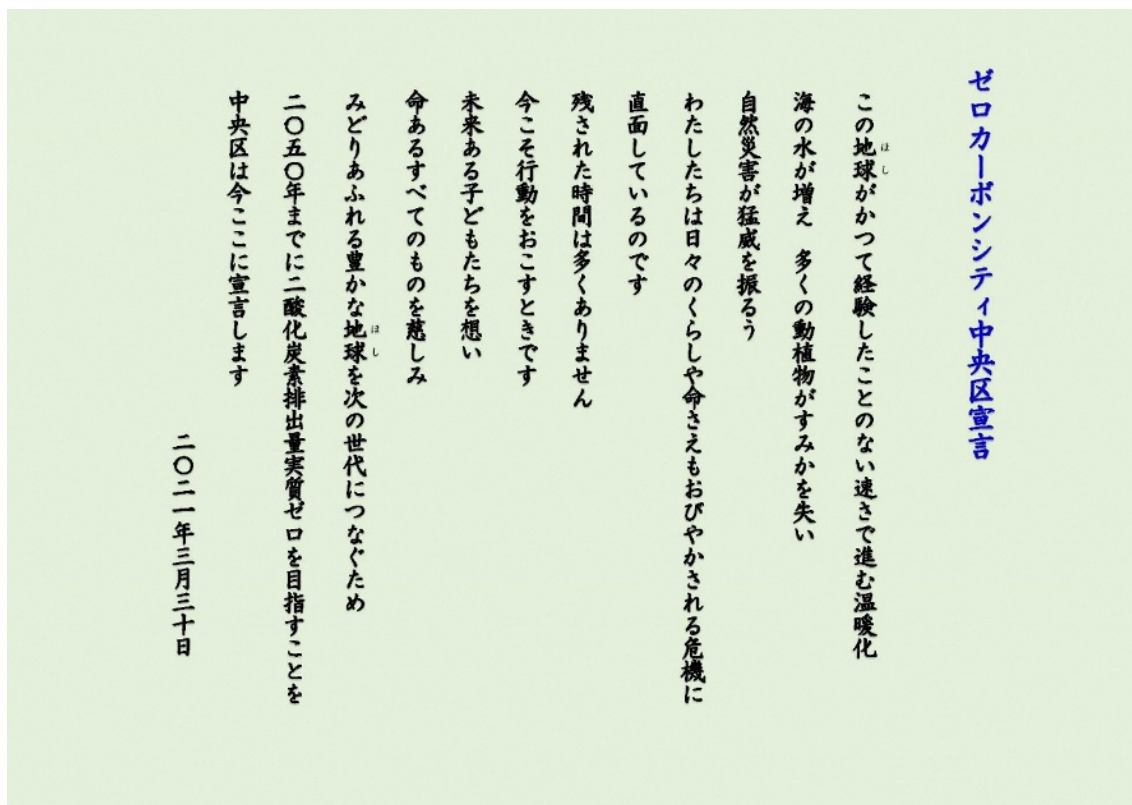 ゼロカーボンシティ中央区宣言
この地球がかつて経験したことのない速さで進む温暖化
ほし
海の水が増え　多くの動植物がすみかを失い
自然災害が猛威を振るう
わたしたちは日々のくらしや命さえもおびやかされる危機に
直面しているのです
残された時間は多くありません
今こそ行動をおこすときです
未来ある子どもたちを想い
命あるすべてのものを慈しみ
みどりあふれる豊かな地球を次の世代につなぐため
ほし
二〇五〇年までに二酸化炭素排出量実質ゼロを目指すことを
中央区は今ここに宣言します
二〇二一年三月三十日